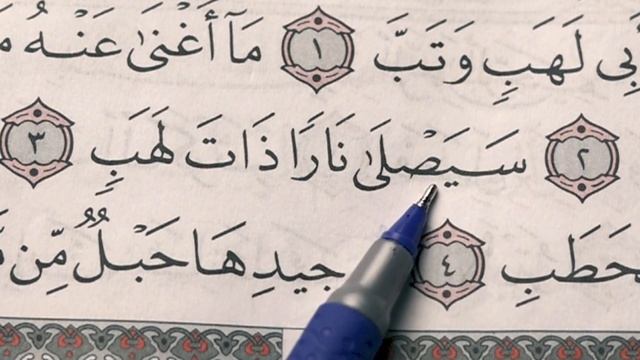 بِى لَهَبٍ وَتَبَّ ١ مَآ أَغْنَىٰ عَنْهُ
٢ سَيَصْلَىٰ نَارًا ذَاتَ لَهَبٍ ٣
حَطَبِ ٤ جِيدِهَا حَبْلٌ مِّن